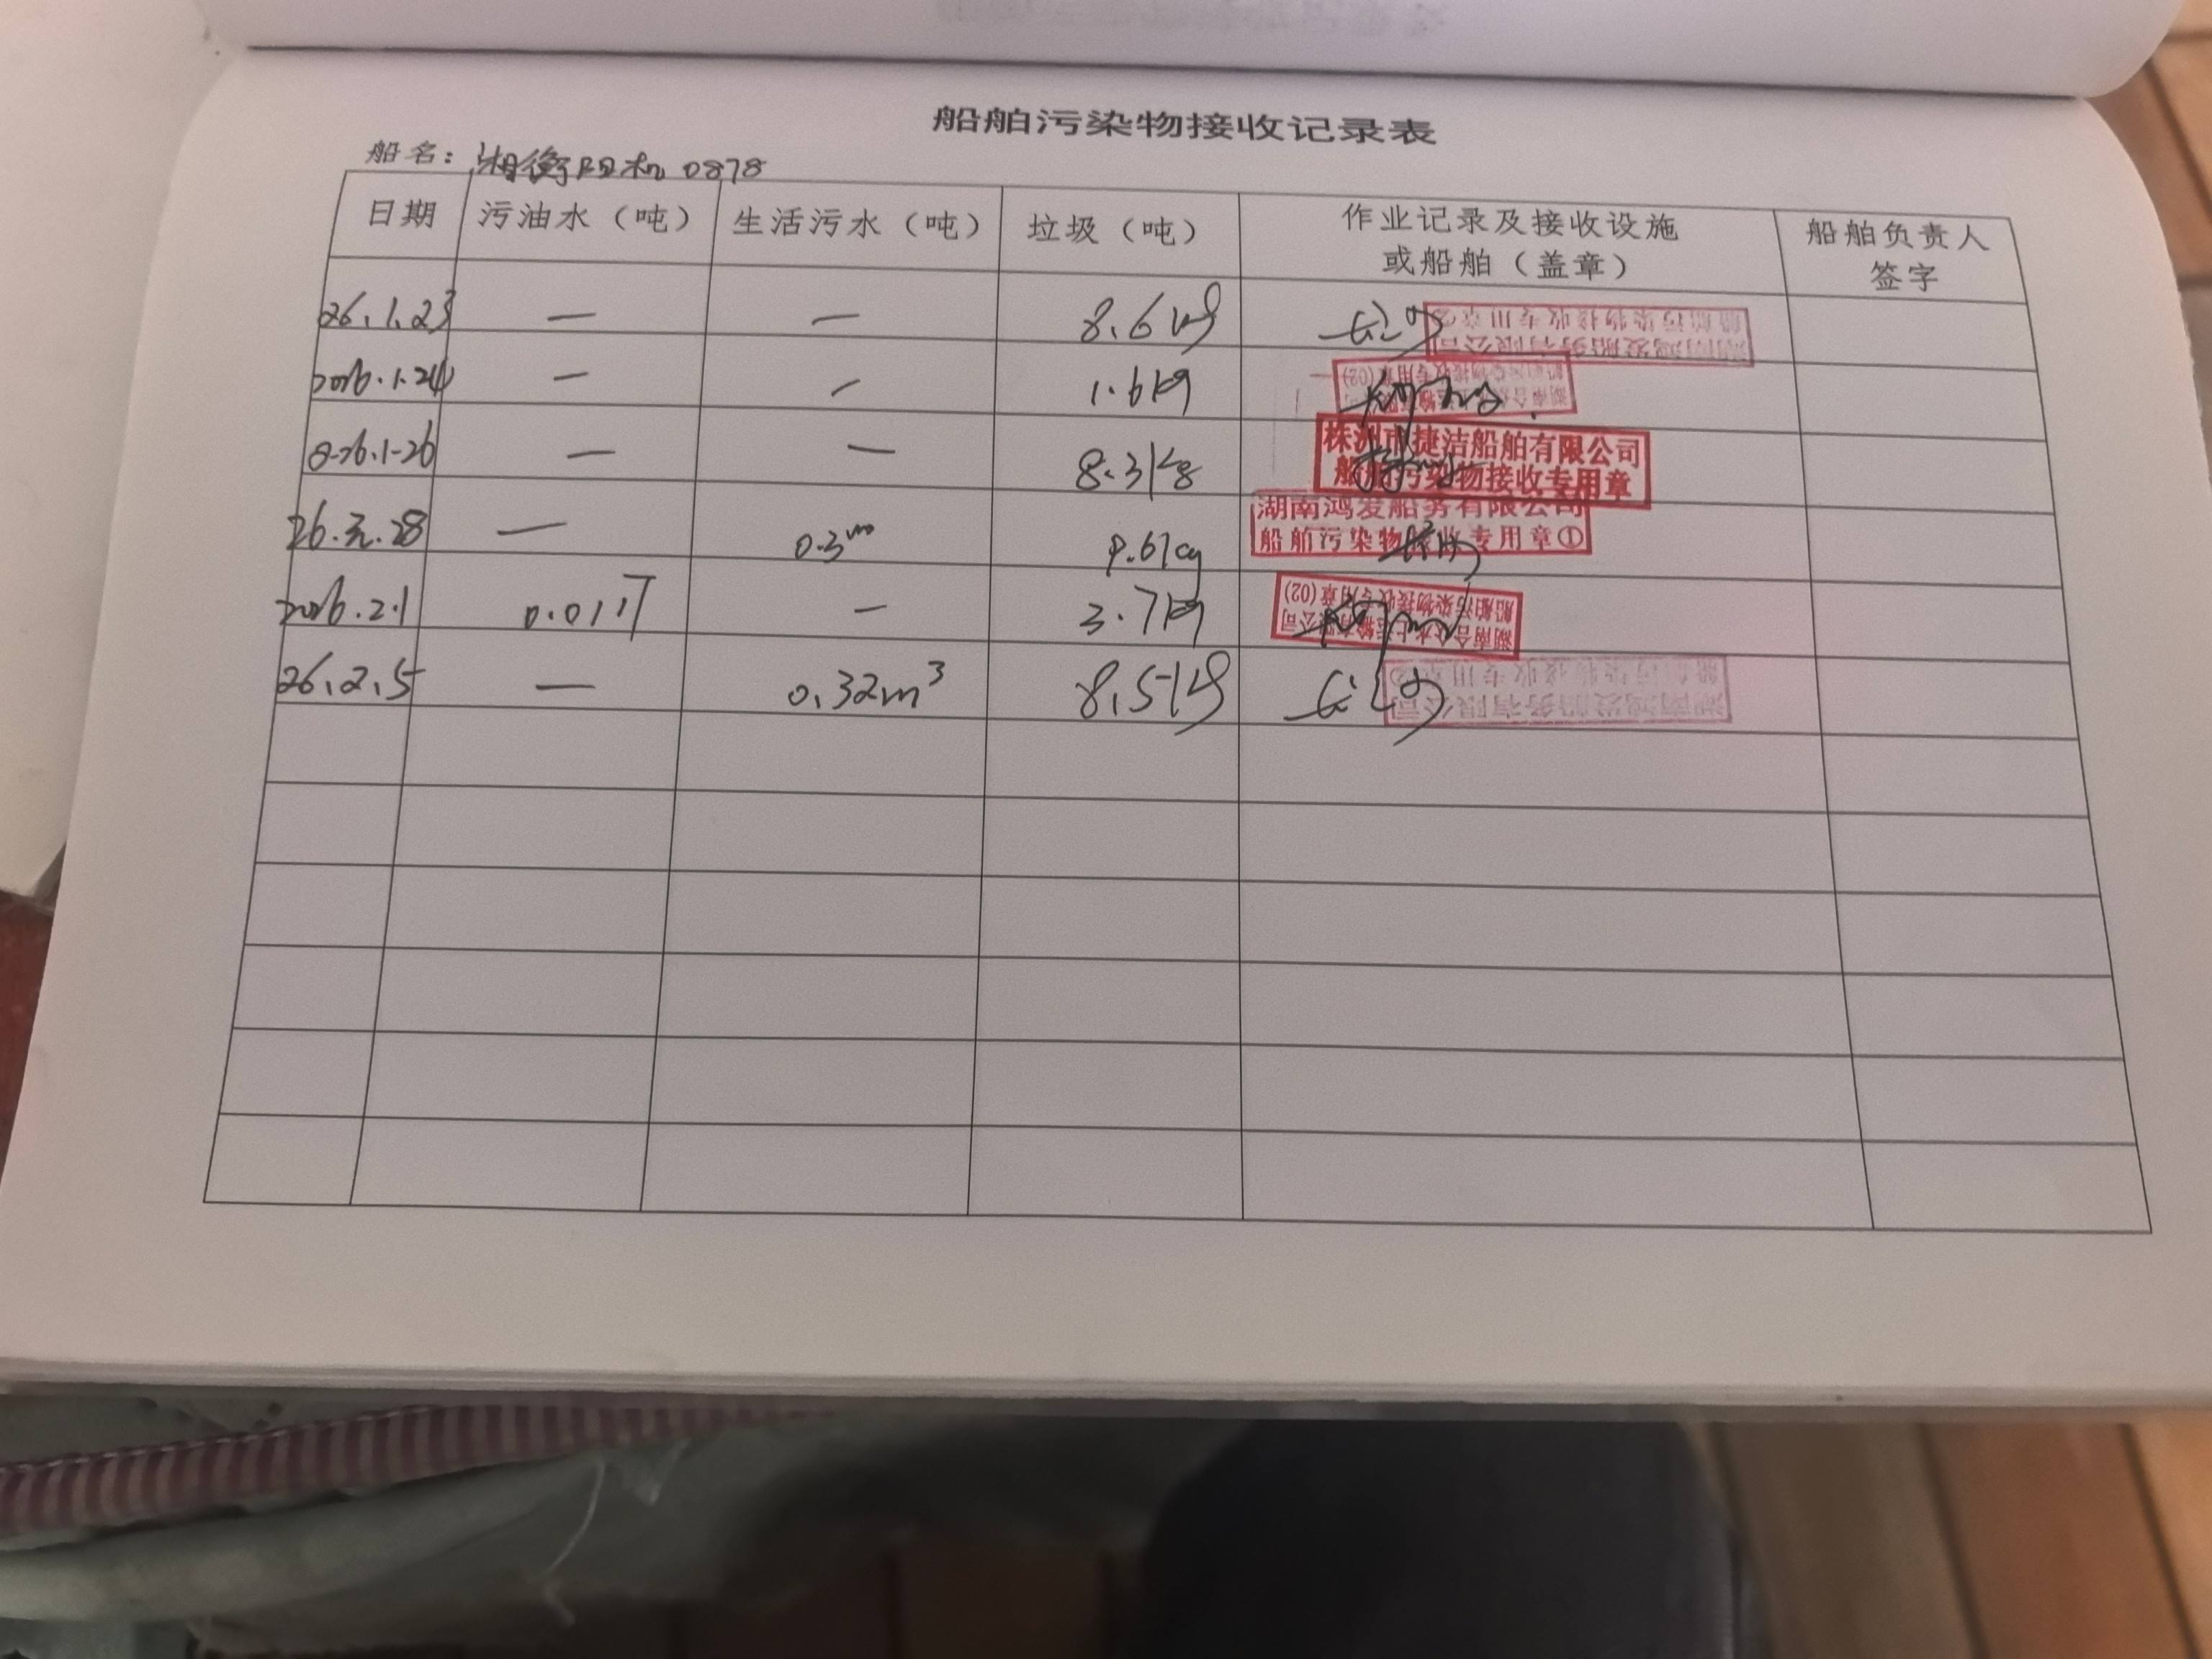 船舶污染物接收记录表
船名：湘衡阳机0878
日期 污油水（吨） 生活污水（吨） 垃圾（吨） 作业记录及接收设施 船舶负责人
或船舶（盖章） 签字
26.1.23 — — 8.6kg
湖南鸿发船务有限公司
船舶污染物接收专用章②
2026.1.24 — — 1.6kg
船舶污染物接收专用章(02)
26.1-26 — — 8.3kg
株洲市捷洁船舶有限公司
船舶污染物接收专用章
26.元.28 — 0.3
湖南鸿发船务有限公司
船舶污染物接收专用章①
2026.2.1 — 3.7kg
湖南合众水上运输有限公司
船舶污染物接收专用章(02)
26.2.5 — 0.32m³ 8.5kg
湖南鸿发船务有限公司
船舶污染物接收专用章②